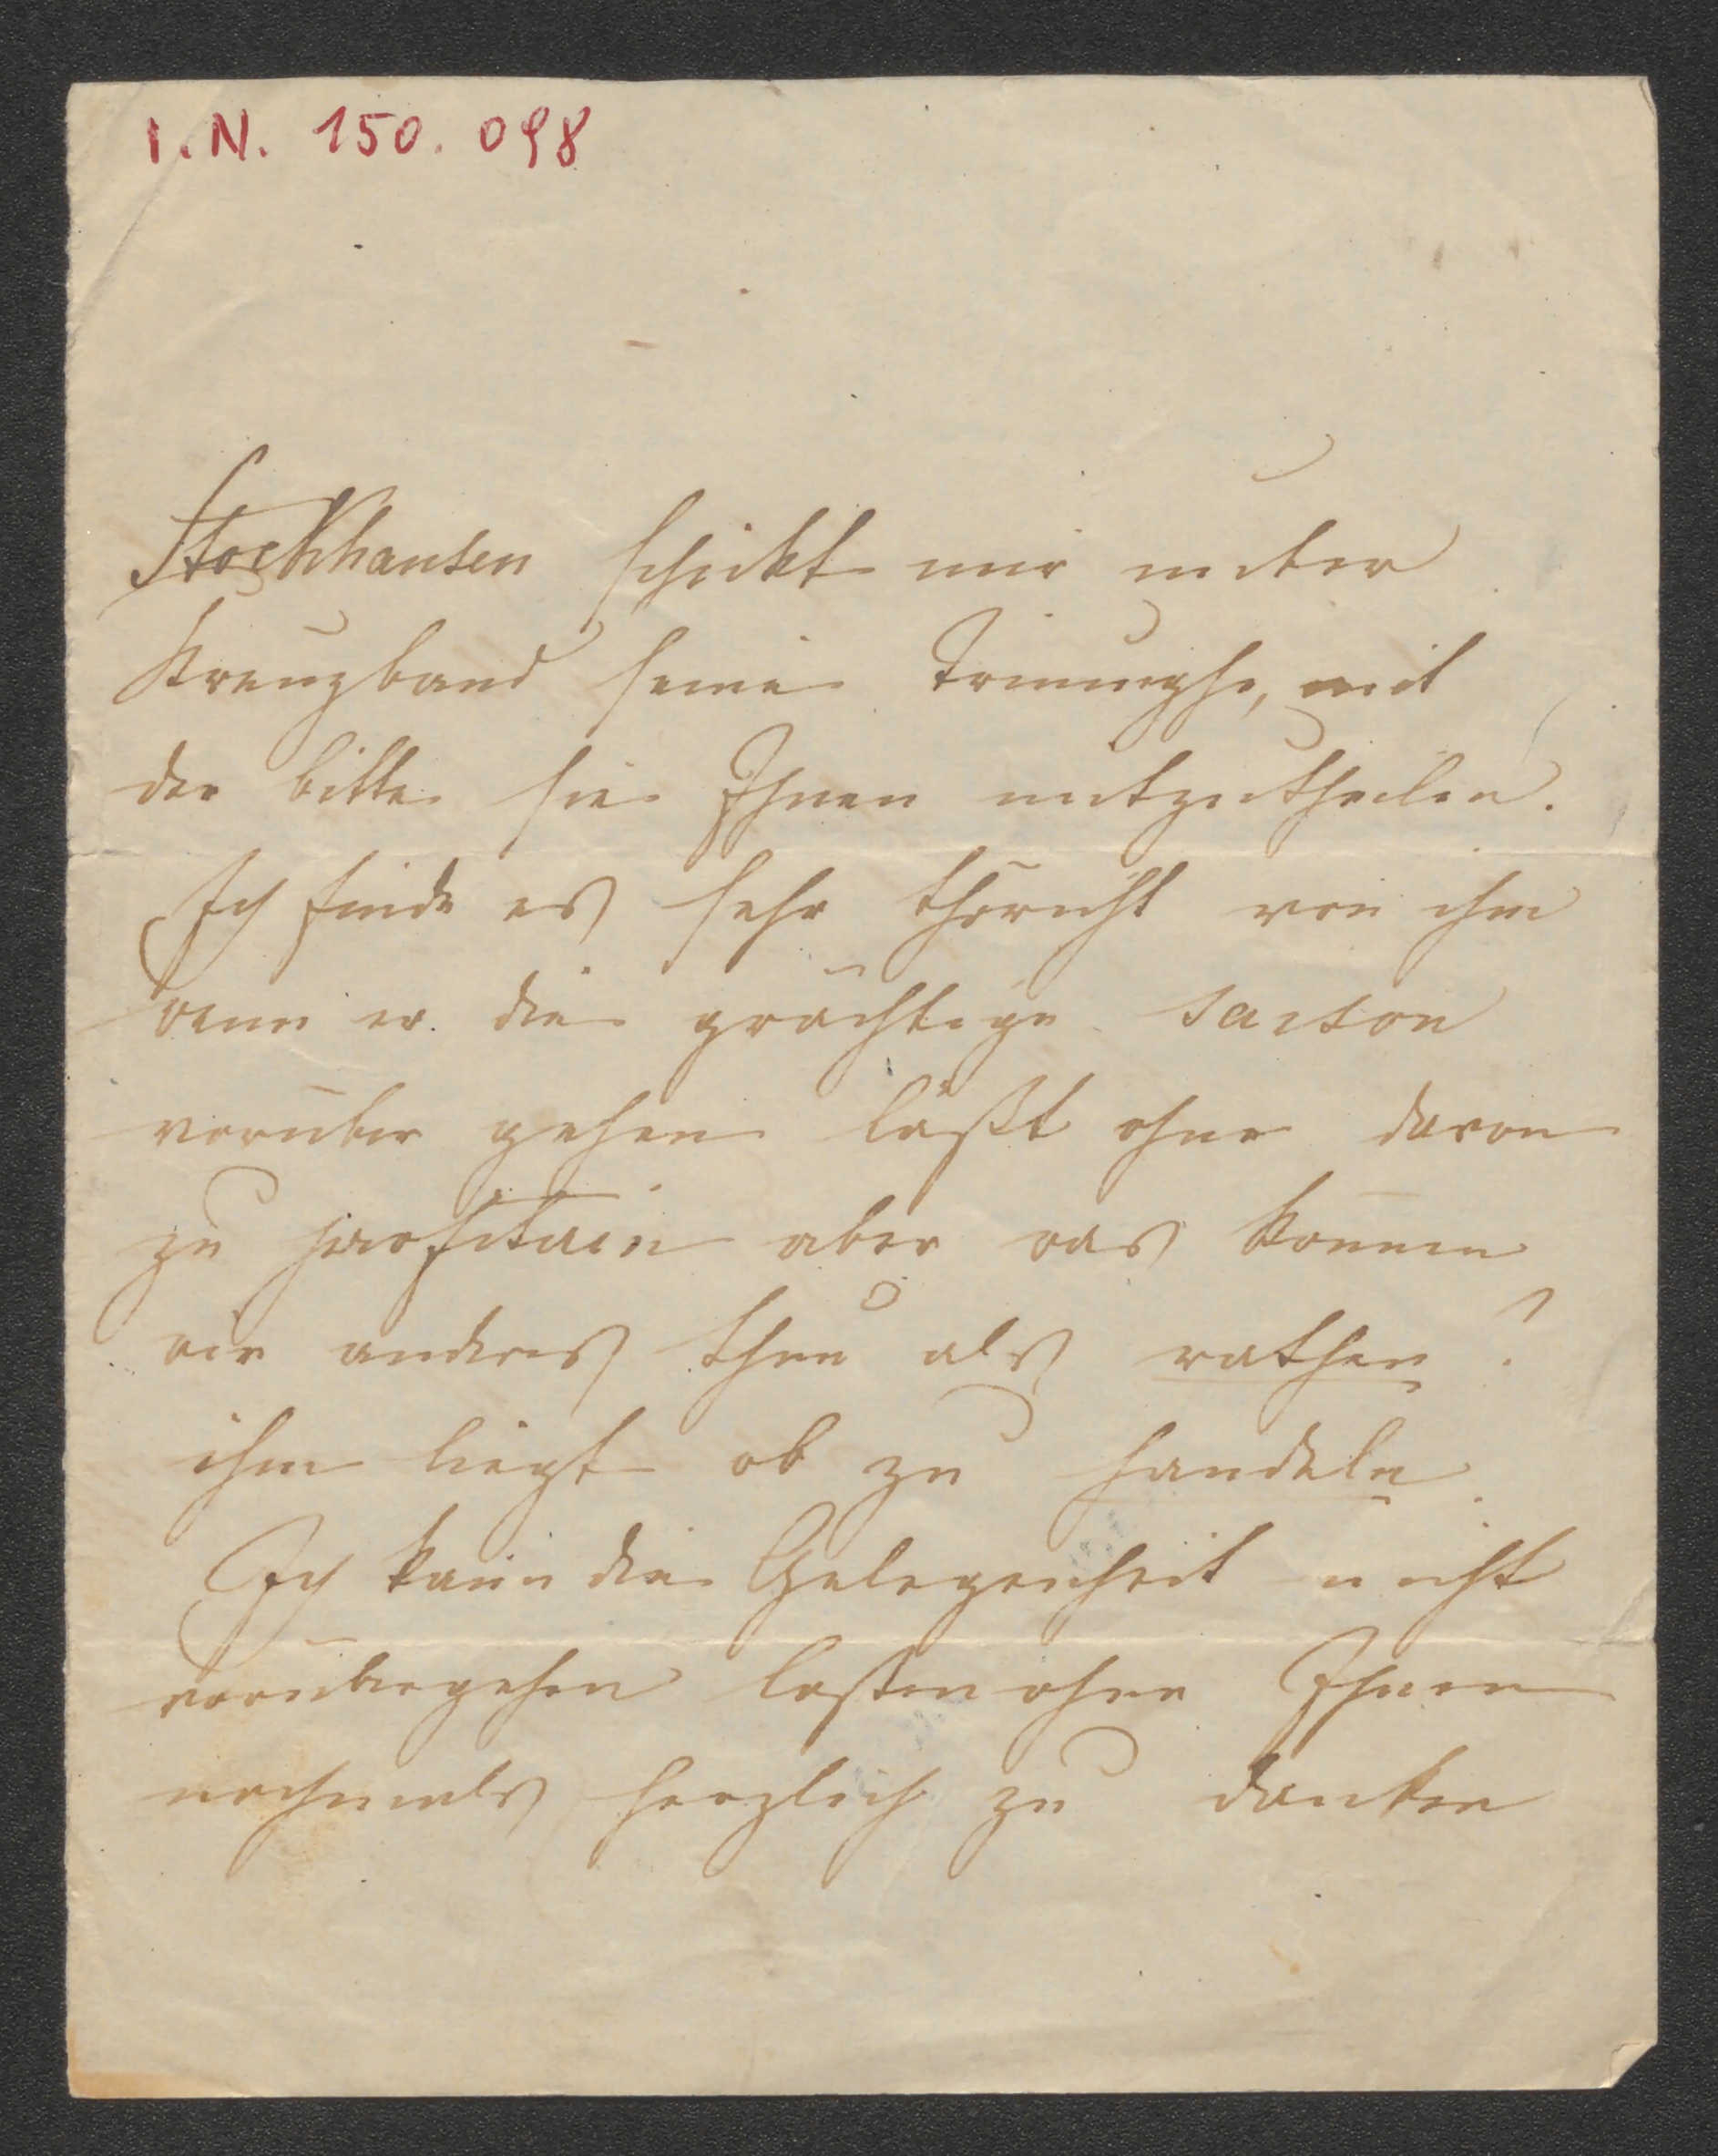 I.N. 150.098
Stockhausen schickt mir unter
Kreuzband seine Triumphe, mit
der bitte sie Ihnen mitzutheilen.
Ich finde es sehr thöricht von ihm
wenn er die prächtige saison
vorüber gehen läßt ohne davon
zu profitiren aber was können
wir anderes thun als rathen?
ihm liegt ob zu handeln.
Ich kann die Gelegenheit nicht
vorübergehen lassen ohne Ihnen
nochmals herzlich zu danken